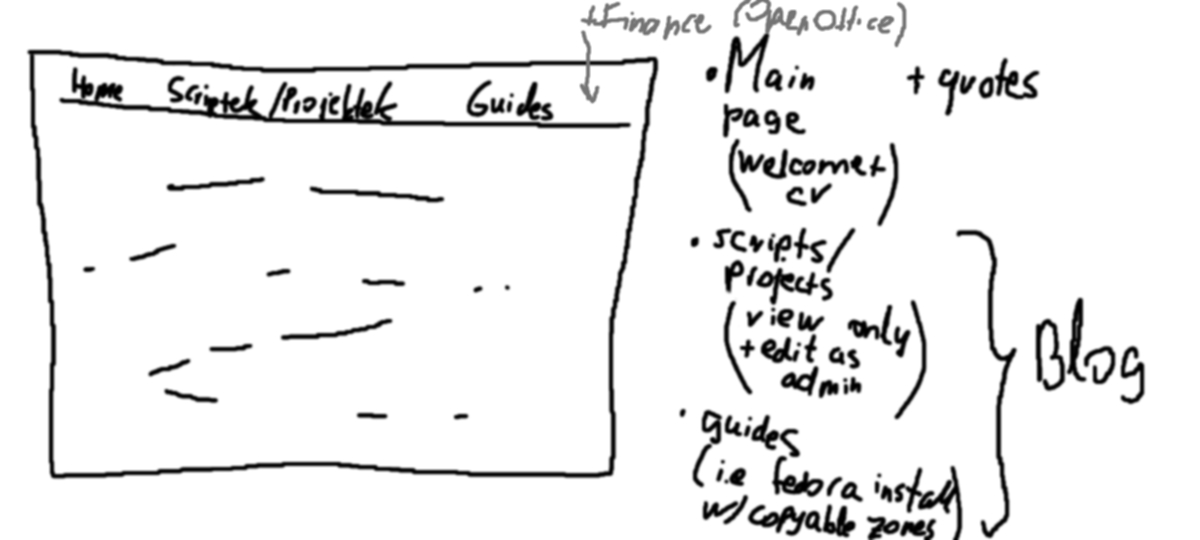 +Finance (OpenOffice)
Home Scriptek/Projektek Guides
• Main + quotes
page
(welcome+
cv)
• scripts/
projects
(view only
+edit as
admin)
Blog
• guides
(i.e fedora install
w/copyable zones)